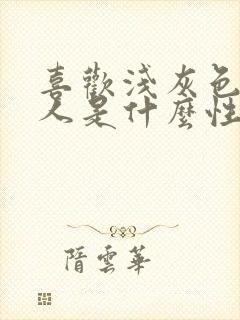 喜歡淺灰色
人是什麼性
隋雲華